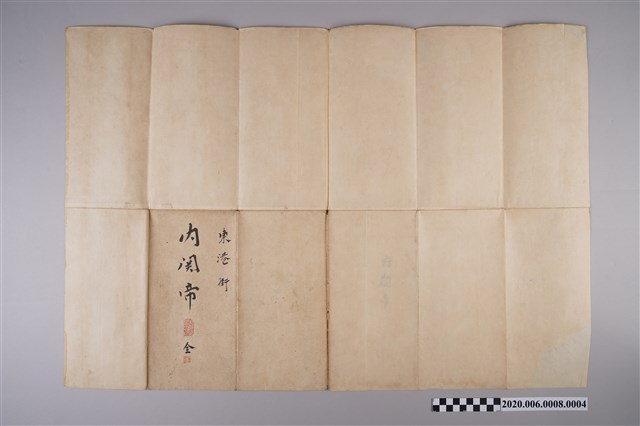 東港街
内関帝
全
2020.006.0008.0004